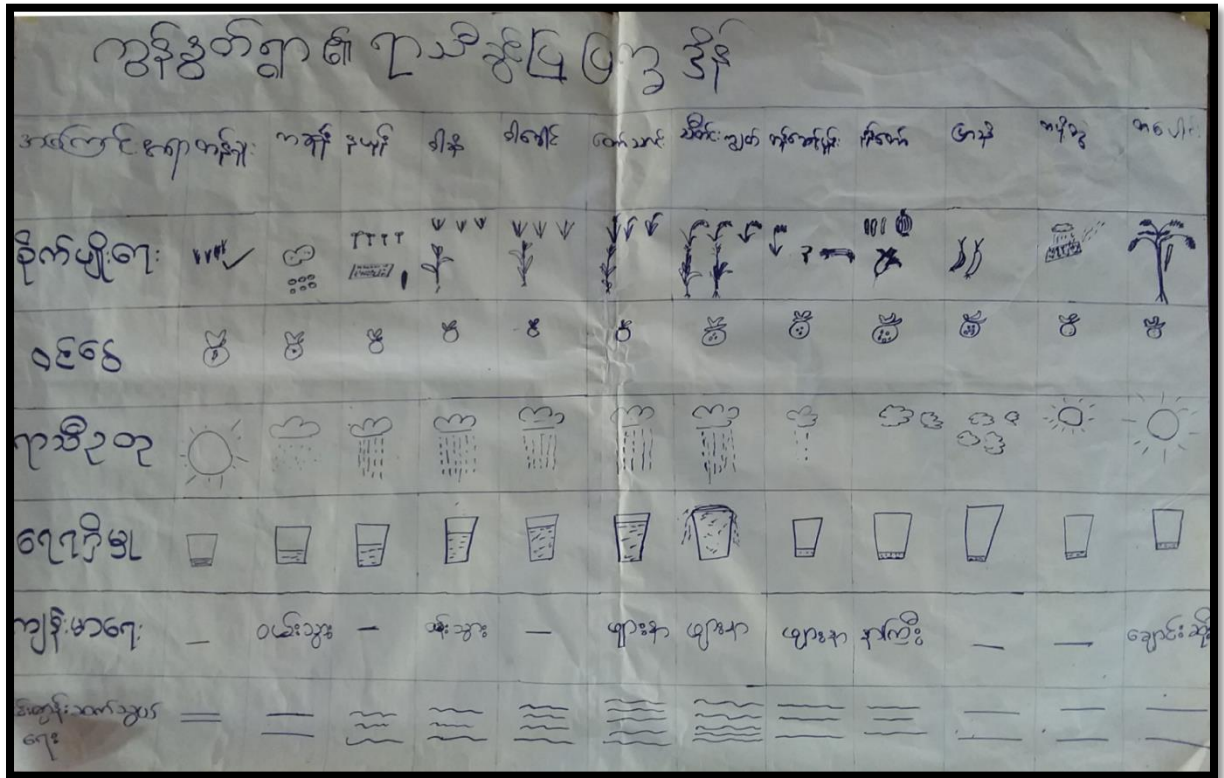 ကွန်နွတ်ရွာ၏ ရာသီခွင်ပြ ပြက္ခဒိန်
အကြောင်းအရာ တန်ခူး ကဆုန် နယုန် ဝါဆို ဝါခေါင် တော်သလင်း သီတင်းကျွတ် တန်ဆောင်မုန်း နတ်တော် ပြာသို တပို့တွဲ တပေါင်း
စိုက်ပျိုးရေး
ဝင်ငွေ
ရာသီဥတု
ရေရရှိမှု
ကျန်းမာရေး — ဝမ်းသွား — ဝမ်းသွား — ဖျားနာ ဖျားနာ ဖျားနာ နာကြီး — — ချောင်းဆိုး
ဆက်သွယ်
ရေး